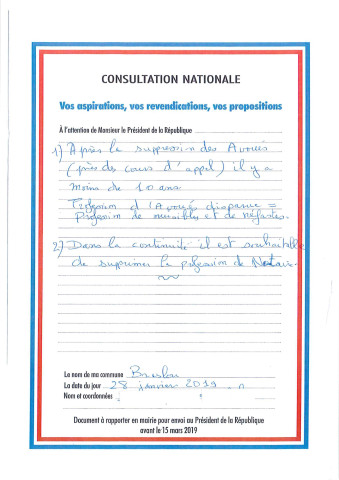 CONSULTATION NATIONALE
Vos aspirations, vos revendications, vos propositions
À l'attention de Monsieur le Président de la République
1) Après la suppression des Avoués
(près des cours d'appel) il y a
moins de 10 ans.
Profession d'Avoués disparue =
Profession de nuisibles et de néfastes.
2) Dans la continuité il est souhaitable
de supprimer la profession de Notaire.
Le nom de ma commune
La date du jour 28 janvier 2019
Nom et coordonnées :
Document à rapporter en mairie pour envoi au Président de la République
avant le 15 mars 2019